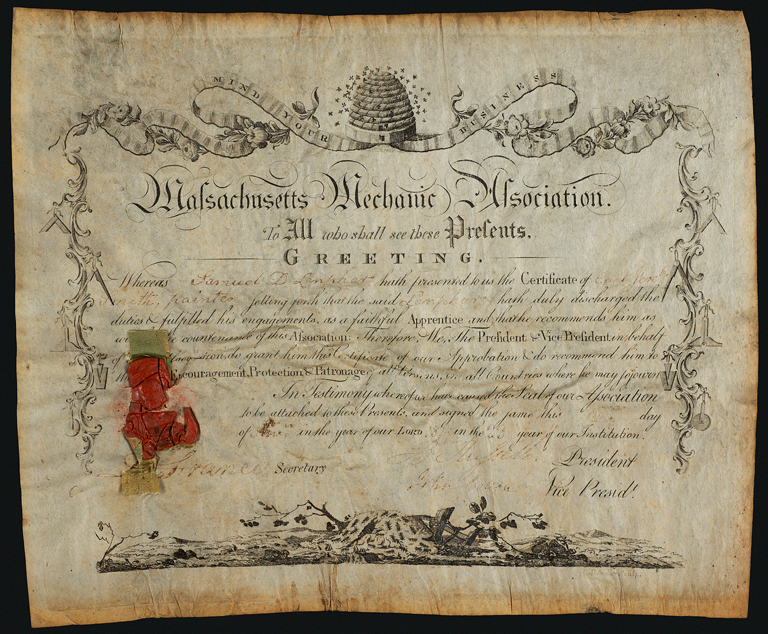 MIND YOUR BUSINESS
Maſsachusetts Mechanic Aſsociation.
To All who shall see these Preſents,
GREETING.
Whereas Samuel D hath preſented to us the Certificate of
painter ſetting forth that the said hath duly diſcharged the
duties & fulfilled his engagements, as a faithful Apprentice and that he recommends him as
countenance of this Aſsociation: Therefore, We, The Preſident & Vice Preſident, in behalf
of do grant him this Certificate of our Approbation & do recommend him to
Encouragement, Protection & Patronage of all Perſons, in all Countries where he may ſojourn
In Teſtimony whereof we have cauſed the Seal of our Aſsociation
to be attached to theſe Preſents, and signed the ſame this day
of in the year of our LORD in the year of our Inſtitution.
Francis Secretary Preſident
John Vice Preſidt.